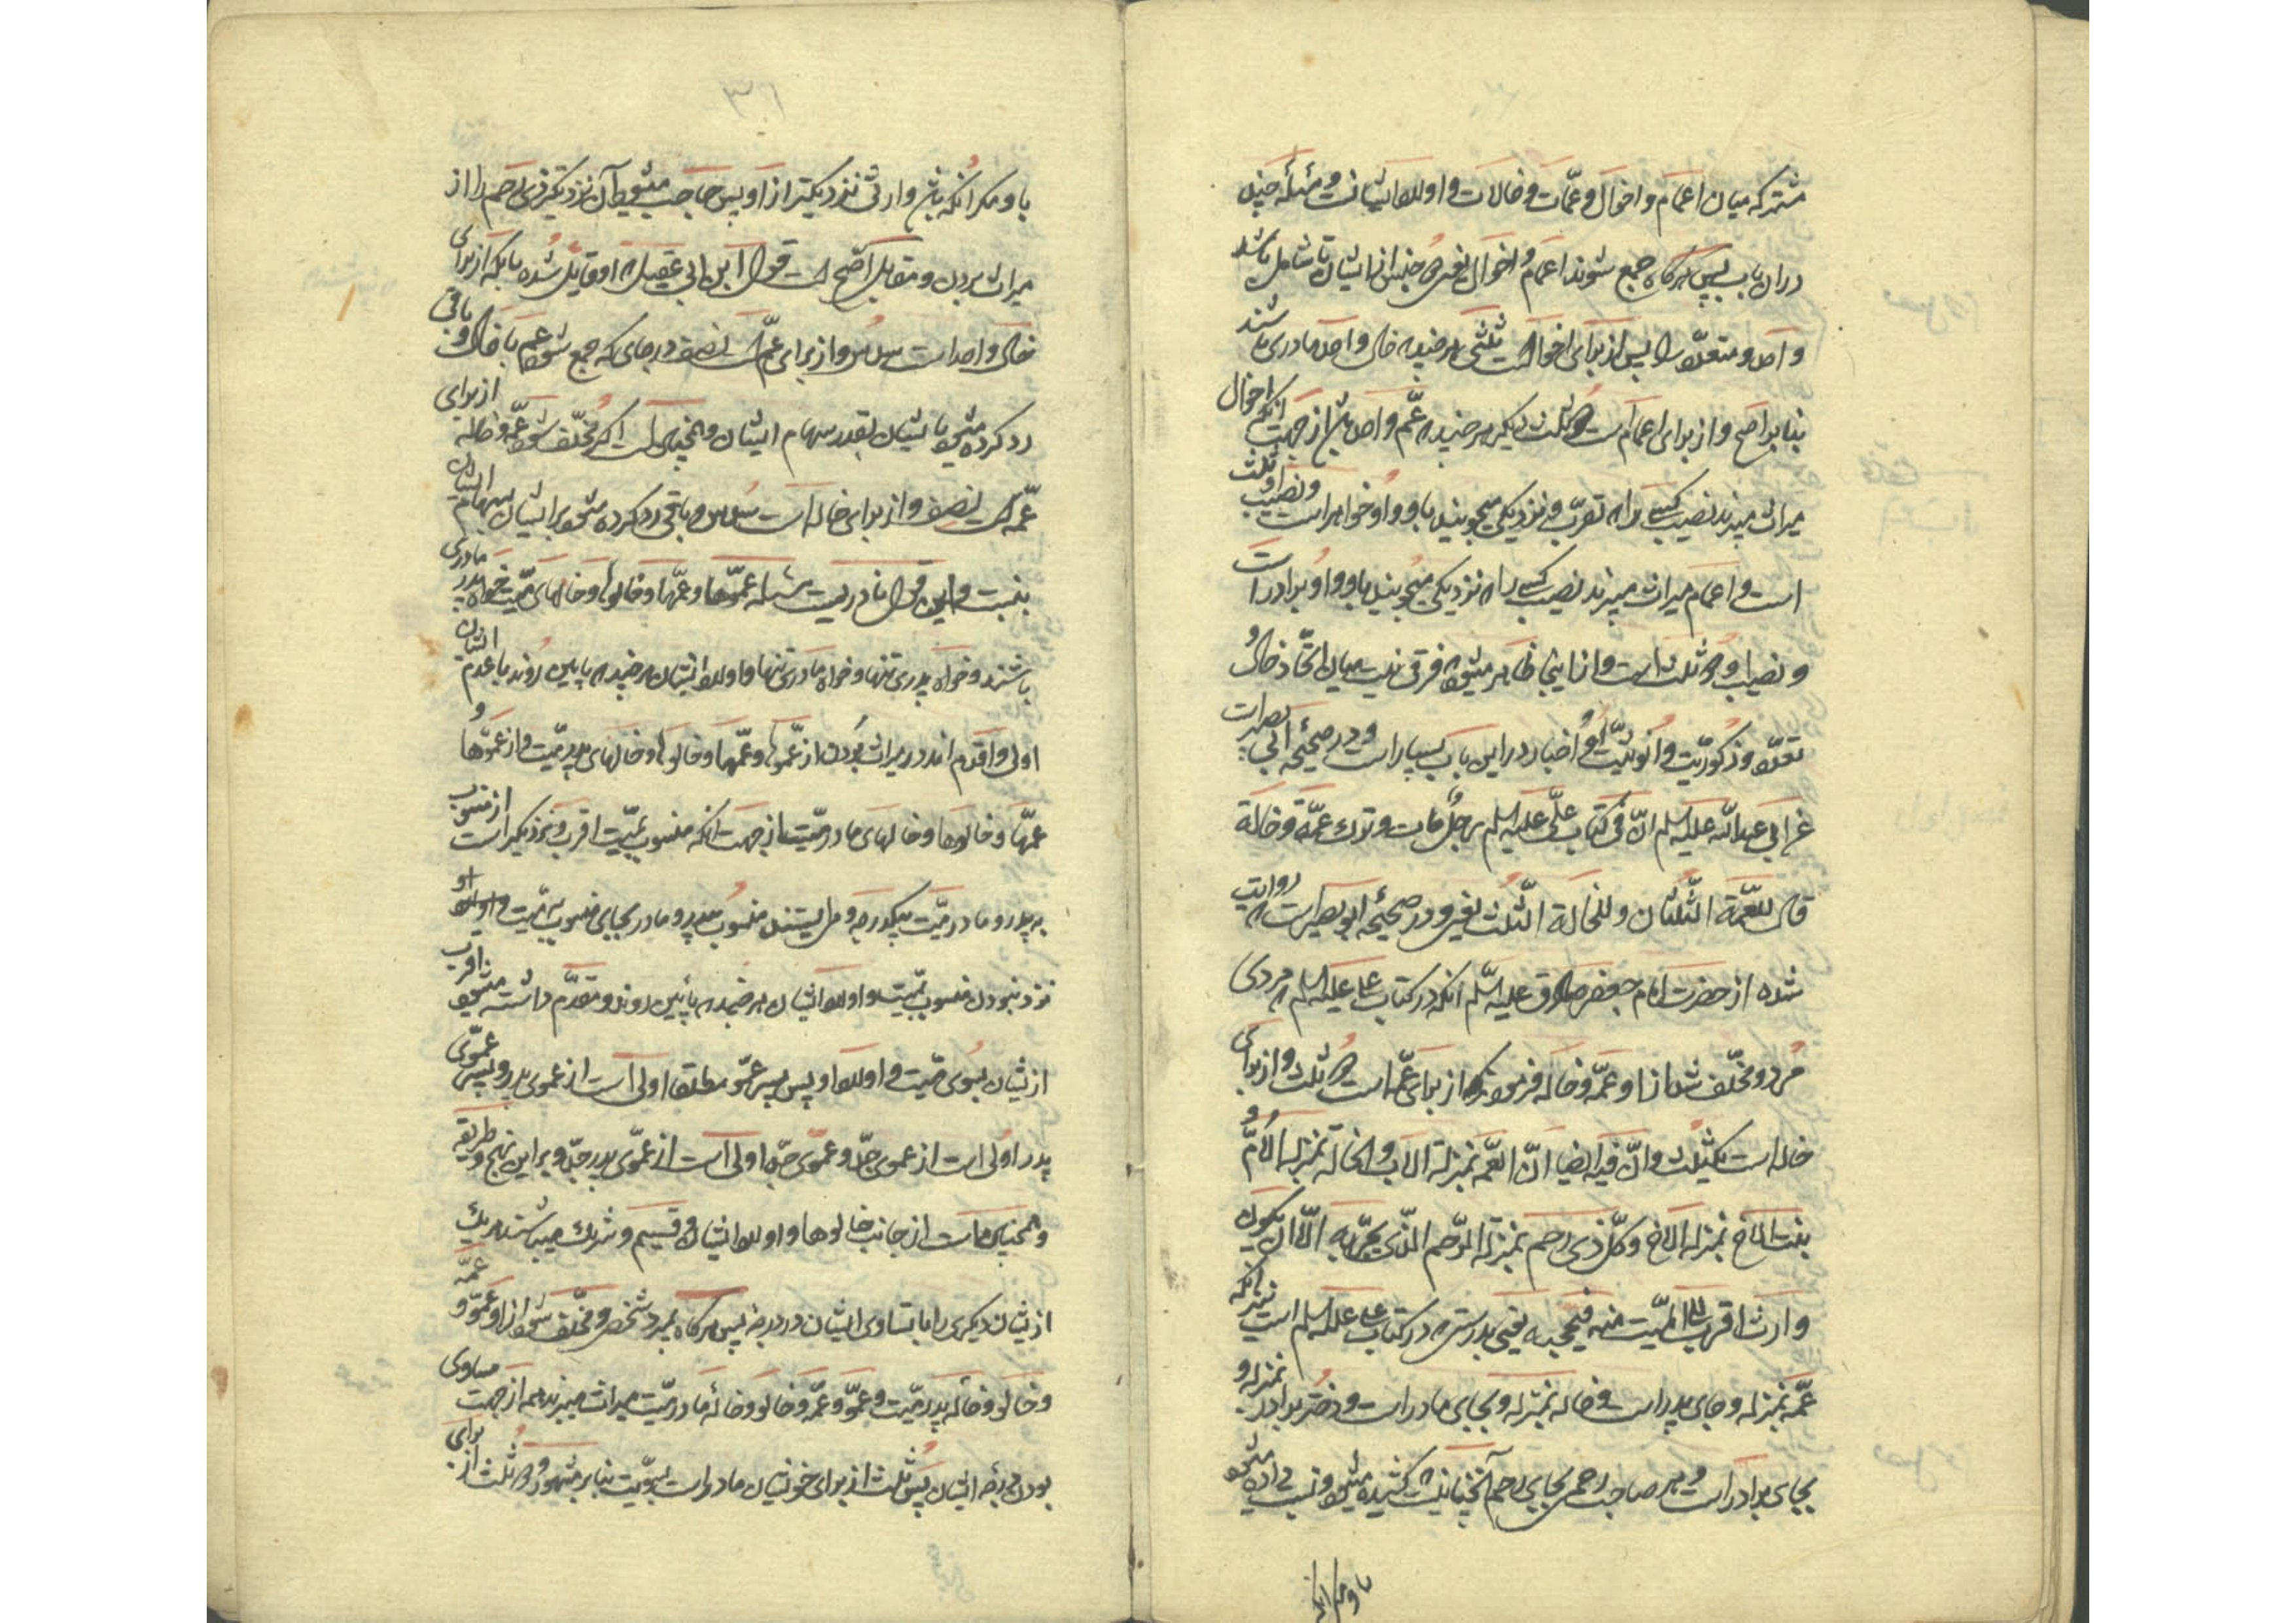 مشترکه میان اعمام و اخوال و عمّات و خالات و اولاد ایشانست و مسئله چند
در ان باب پس هرکاه جمع شوند اعمام و اخوال یعنی جنس از ایشان تا شامل باشد
واحد و متعدّد را پس از برای اخوالست ثلثی هر چند که خال واحد مادری باشند
بنا بر اصح و از برای اعمام است دو ثلث دیکر هر چند که عمّ واحد باشد از جهت انکه اخوال
میراث میبرند نصیب کسی را که تقرّب و نزدیکی میجویند باو و او خواهر است و نصیب او ثلث
است و اعمام میراث میبرند نصیب کسی را که نزدیکی میجویند باو و او برادر است
و نصیب او دو ثلث است و از اینجا ظاهر میشود که فرقی نیست میان اتّحاد خال و
تعدّد و ذکوریّت و انوثیّت او و اخبار در این باب بسیار است و در صحیحه ابی بصیر است
عن ابی عبد اللّه علیه السلم انّ فی کتاب علّی علیه السلم رجل مات و ترک عمّة و خالة
قال للعمّة الثّلثان و للخالة الثّلث یعنی و در صحیحه ابو بصیر است که روایت
شده از حضرت امام جعفر صادق علیه السّلم انکه در کتاب علی علیه السلم که مردی
مرد و مخلّف شد از او عمّه و خاله فرمود که از برای عمّه است دو ثلث و از برای
خاله است یکثلث و انّ فیه ایضا انّ العمّة بمنزلة الاب و الخالة بمنزلة الامّ و
بنت الاخ بمنزلة الاخ و کلّ ذی رحم بمنزلة الرّحم الذّی یجرّ به الّا ان یکون
وارث اقرب الی المیّت منه فیحجبه یعنی بدرستی که در کتاب علی علیه السلم است نیز انکه
عمّه بمنزله و جای پدر است و خاله بمنزله و بجای مادر است و دختر برادر بمنزله و
بجای برادر است و هر صاحب رحمی بجای رحم آنچنانیست که کشیده میشود و نسبت داده میشود
باو مکر انکه
باو مکر انکه باشد وارثی نزدیکتر از او پس حاجب میشود آن نزدیکتر ذی رحم را از
میراث بردن و مقابل اصّح است قول ابن ابی عقیل که او قایل شده بانکه از برای
خال واحد است سدس و از برای عمّ است نصف در جای که جمع شود عم با خال و باقی
رد کرده میشود بایشان بقدر سهام ایشان و همچنین است اکر مخلّف شود عمّه و خاله از برای
عمّه است نصف و از برای خاله است سدس و باقی رد کرده میشود بر ایشان بسهام ایشان
و این قول نادر است مسئله عموّها و عمّها و خالوها و خالهای میّت خواه پدر مادری
باشند و خواه پدری تنها و خواه مادری تنها و اولاد ایشان هر چند که پایین روند با عدم ایشان
اولی و اقدم اند در میراث بردن از عموّها و عمّها و خالوها و خالهای پدر میّت و از عموّها و
عمّها و خالوها و خالهای مادر میّت از جهت انکه منسوب بمیّت اقرب و نزدیکتر است از منسوب
به پدر و مادر میّت بیکدرجه و هر یستند منسوب بپدر و مادر بجای منسوب بمیّت و او
نزد نبودن منسوب بمیّت و اولاد ایشان هر چند که پایین روند و مقدّم داشته میشود اقرب
از یشان بسوی میّت و اولاد او پس پسر عمّو مطلقا اولی است از عموی پدر و پسر عمّوی
پدر اولی است از عموی جدّ و عموی جدّ اولی است از عمّوی پدر جدّ و بر این نهج و طریقه
و همچنین است از جانب خالوها و اولاد ایشان و قسیم و شریک میباشند هر یک
از یشان دیکری را با تساوی ایشان در درجه پس هرکاه بمیرد شخصی و مخلّف شود از او عمّو و عمّه
و خالو و خاله پدر میّت و عموّ و عمّه و خالو و خاله مادر میّت میراث میبرند همه از جهت مساوی
بودن درجه ایشان پس ثلث از برای خویشان مادر است بسویّت بنابر مشهور و دو ثلث از برای